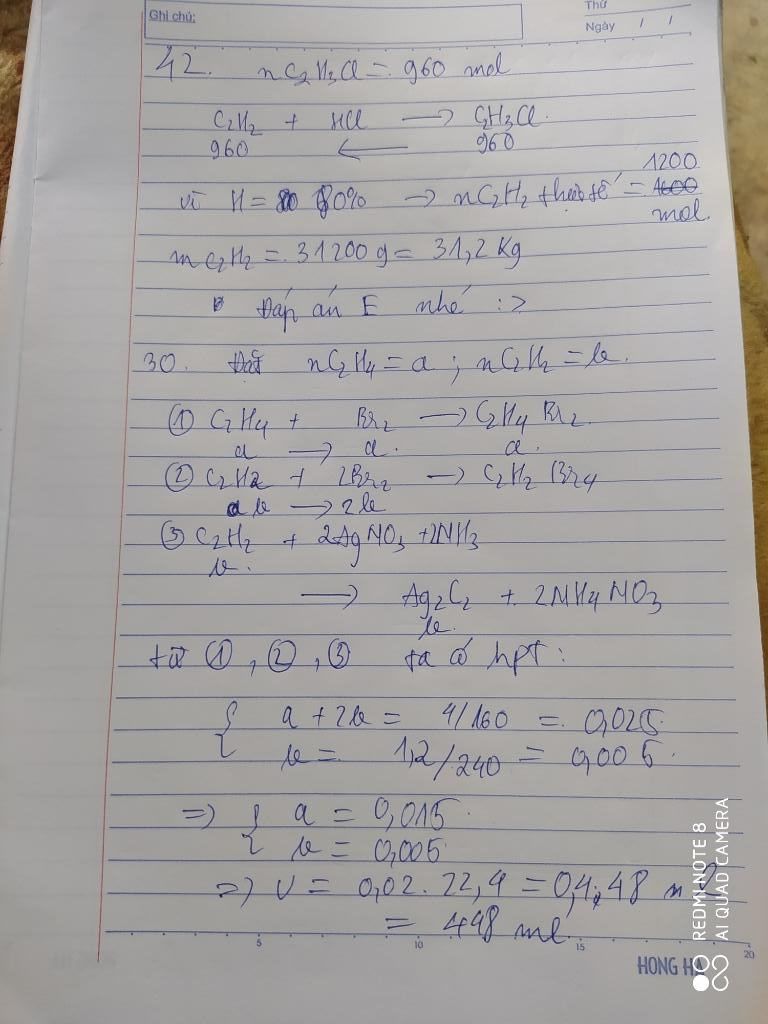 Ghi chú:
Thứ
Ngày / /
42. nC2H3Cl = 960 mol
C2H2 + HCl → C2H3Cl.
960 ← 960
1200
vì H = 80% → nC2H2 thực tế = 1600
mol.
mC2H2 = 31200g = 31,2 Kg
Đáp án E nhé :>
30. Đặt nC2H4 = a ; nC2H2 = b.
① C2H4 + Br2 → C2H4Br2.
a → a. a.
② C2H2 + 2Br2 → C2H2Br4
b → 2b
③ C2H2 + 2AgNO3 + 2NH3
b.
→ Ag2C2 + 2NH4NO3
b.
từ ①, ②, ③ ta có hpt:
{ a + 2b = 4/160 = 0,025
b = 1,2/240 = 0,005.
=> { a = 0,015
b = 0,005
=> V = 0,02.22,4 = 0,448
= 448 ml.
5 10 15 20
HONG HA
REDMI NOTE 8
AI QUAD CAMERA